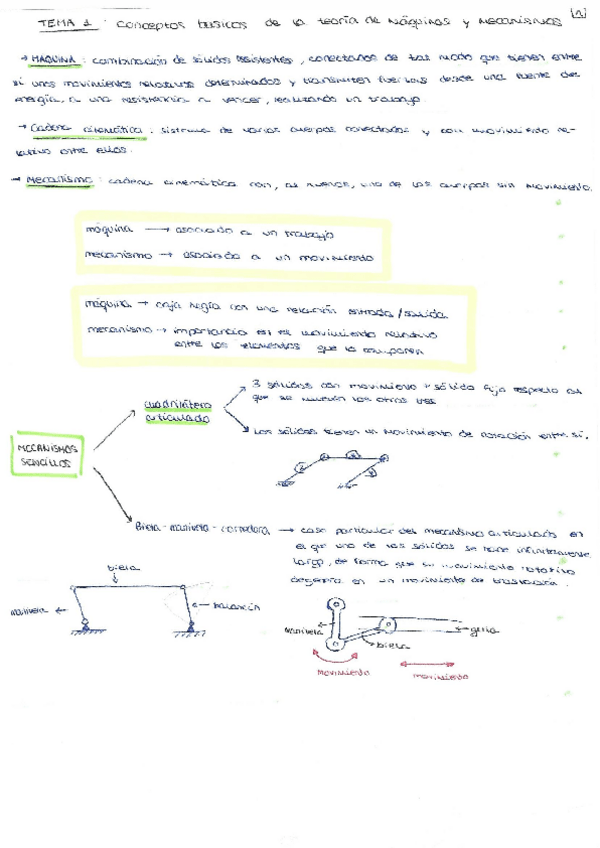 TEMA 1 : Conceptos básicos de la teoría de Máquinas y Mecanismos [1]
→ MÁQUINA : combinación de sólidos resistentes, conectados de tal modo que tienen entre
sí unos movimientos relativos determinados y transmiten fuerzas desde una fuente de
energía, a una resistencia a vencer, realizando un trabajo.
→ Cadena cinemática : sistema de varios cuerpos conectados y con movimiento re-
lativo entre ellos.
→ Mecanismo : cadena cinemática con, al menos, uno de los cuerpos sin movimiento.
máquina → asociado a un trabajo
mecanismo → asociado a un movimiento
máquina → caja negra con una relación entrada/salida.
mecanismo → importancia es el movimiento relativo
entre los elementos que lo componen
MECANISMOS
SENCILLOS
cuadrilátero
articulado
3 sólidos con movimiento + sólido fijo respecto al
que se mueven los otros tres
Los sólidos tienen un movimiento de rotación entre sí.
Biela-manivela-corredera → caso particular del mecanismo articulado en
el que uno de los sólidos se hace infinitamente
largo, de forma que su movimiento rotativo
degenera en un movimiento de traslación.
biela
manivela ←
← balancín
manivela
guía
biela
movimiento
movimiento